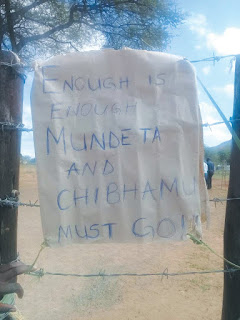 ENOUGH IS
ENOUGH
MUNDETA
AND
CHIBHAMU
MUST GO!!